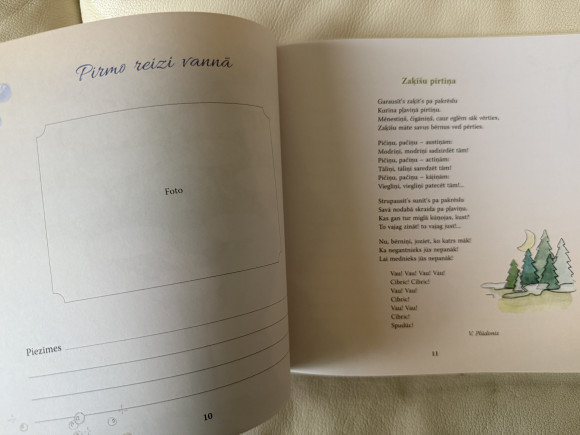 Pirmo reizi vannā
Foto
Piezīmes
10
Zaķīšu pirtiņa
Garausīt's zaķīt's pa pakrēslu
Kurina pļaviņā pirtiņu.
Mēnestiņš, čigāniņš, caur eglēm sāk vērties.
Zaķīšu māte savus bērnus ved pērties.
Pičiņu, pačiņu – austiņām:
Modriņi, modriņi sadzirdēt tām!
Pičiņu, pačiņu – actiņām:
Tāliņi, tāliņi saredzēt tām!
Pičiņu, pačiņu – kājiņām:
Viegliņi, viegliņi patecēt tām!..
Strupausīt's sunīt's pa pakrēslu
Savā nodabā skraida pa pļaviņu.
Kas gan tur miglā kūņojas, kust?
To vajag zināt! to vajag just!...
Nu, bērniņi, joziet, ko katrs māk!
Ka negantnieks jūs nepanāk!
Lai mednieks jūs nepanāk!
Vau! Vau! Vau! Vau!
Cibric! Cibric!
Vau! Vau!
Cibric!
Vau! Vau!
Cibric!
Spudūc!
V. Plūdonis
11